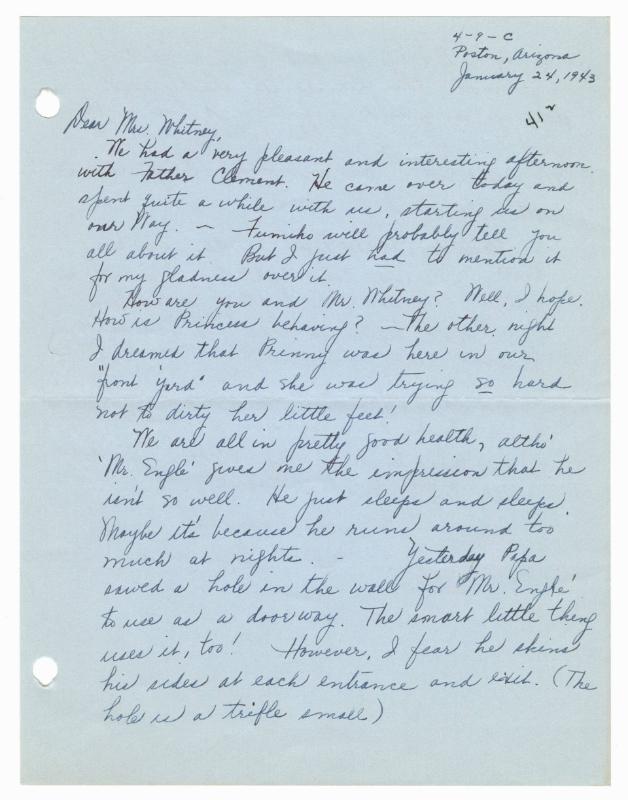 4-9-C
Poston, Arizona
January 24, 1943
412
Dear Mrs. Whitney,
We had a very pleasant and interesting afternoon
with Father Clement. He came over today and
spent quite a while with us, starting us on
our Way. — Fumiko will probably tell you
all about it. But I just had to mention it
for my gladness over it.
How are you and Mr. Whitney? Well, I hope.
How is Princess behaving? — The other night
I dreamed that Prinny was here in our
"front yard" and she was trying so hard
not to dirty her little feet!
We are all in pretty good health, altho'
'Mr. Engle' gives me the impression that he
isn't so well. He just sleeps and sleeps.
Maybe it's because he runs around too
much at nights. - Yesterday Papa
sawed a hole in the wall for 'Mr. Engle'
to use as a doorway. The smart little thing
uses it, too! However, I fear he skins
his sides at each entrance and exit. (The
hole is a trifle small)